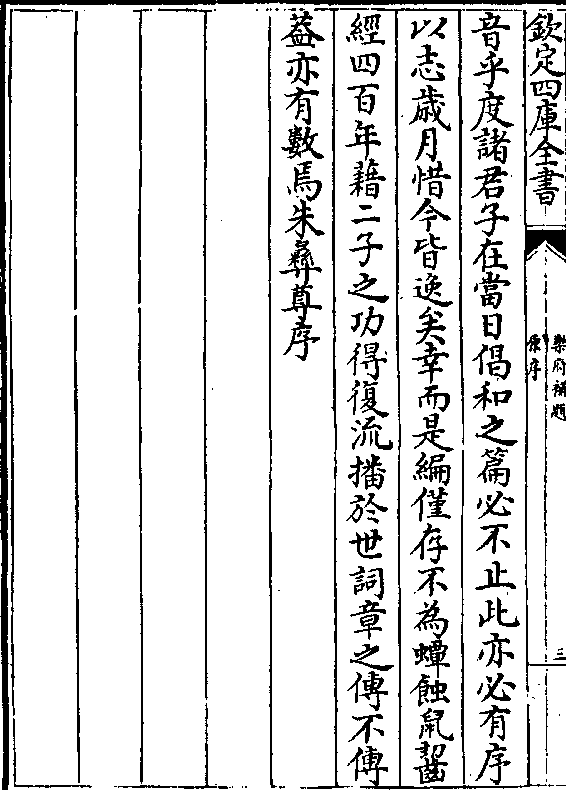 欽定四庫全書
樂府補題
原序
三
音乎度諸君子在當日倡和之篇必不止此亦必有序
以志歲月惜今皆逸矣幸而是編僅存不為蟫蝕鼠齧
經四百年藉二子之功得復流播於世詞章之傳不傳
葢亦有數焉朱彝尊序